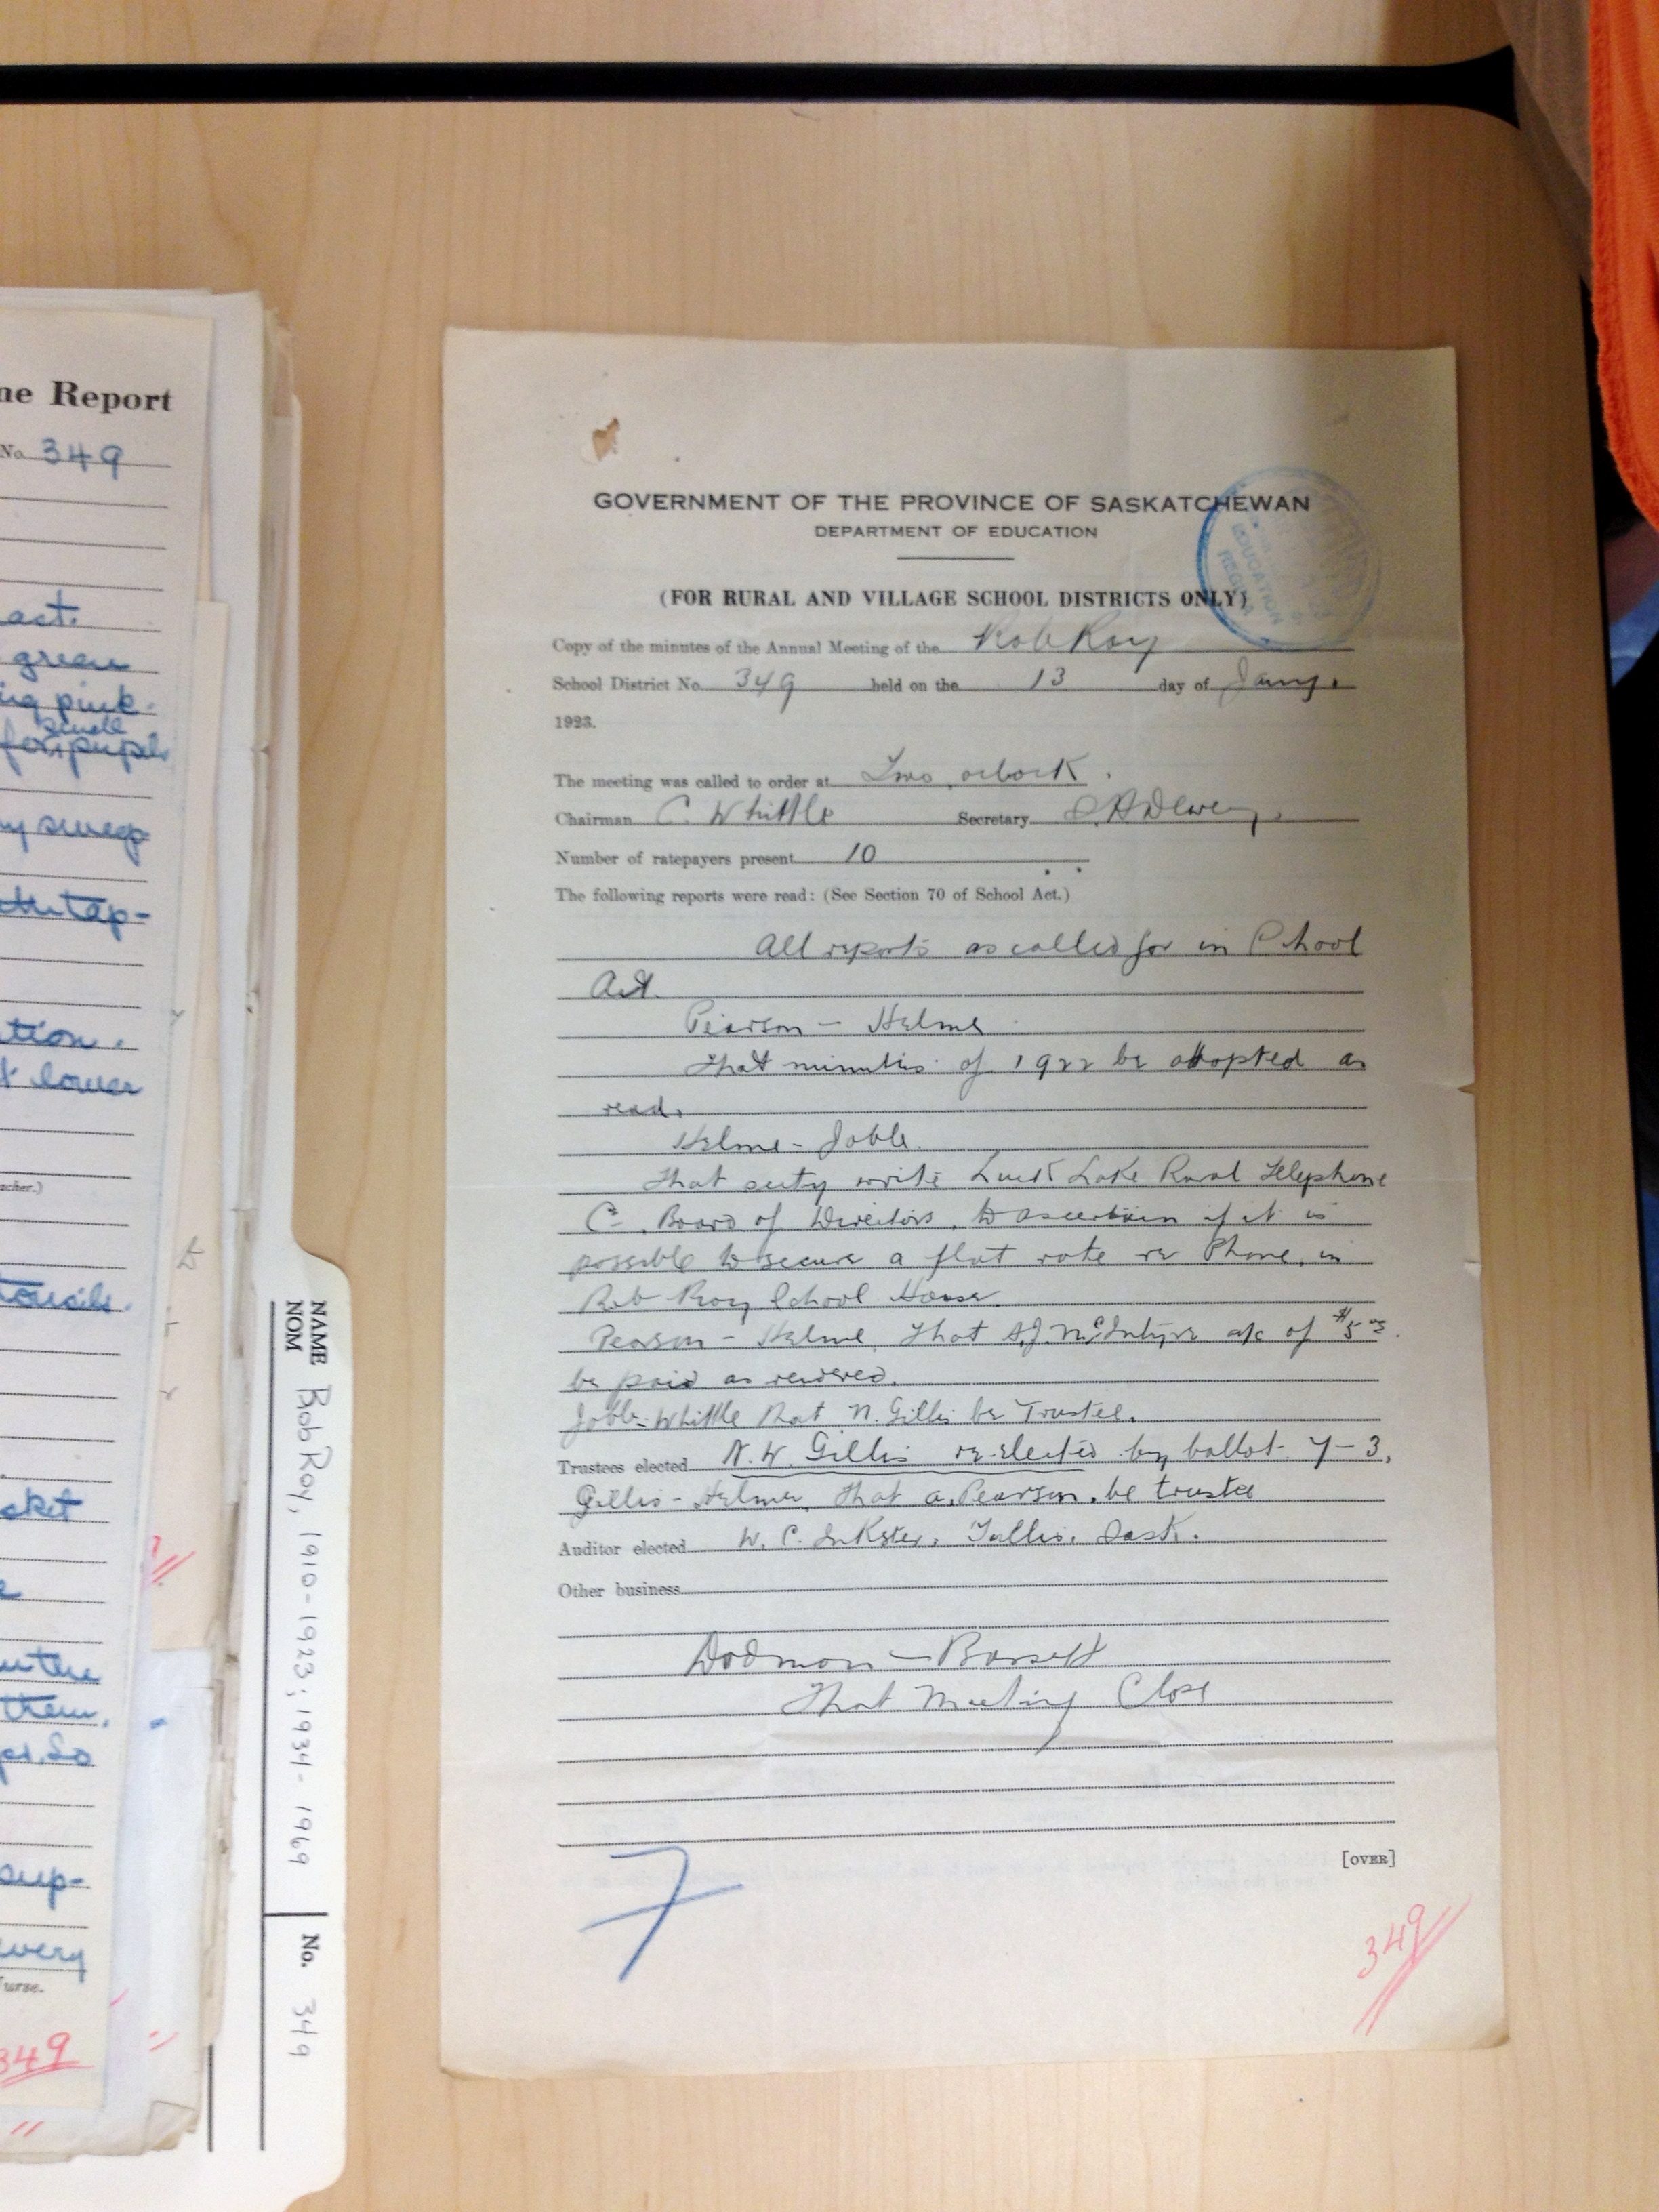 ne Report
No. 349
act.
green
ing pink.
small
for pupils
sweep
tap-
tion.
t lower
acher.)
cket
in the
them.
sup-
every
urse.
349
NAME
NOM
Bob Roy, 1910-1923; 1934-1969
No. 349
GOVERNMENT OF THE PROVINCE OF SASKATCHEWAN
DEPARTMENT OF EDUCATION
EDUCATION
REGINA
(FOR RURAL AND VILLAGE SCHOOL DISTRICTS ONLY)
Copy of the minutes of the Annual Meeting of the Rob Roy
School District No. 349 held on the 13 day of Jany.
1923.
The meeting was called to order at Two oclock.
Chairman C. Whittle Secretary
Number of ratepayers present 10
The following reports were read: (See Section 70 of School Act.)
All reports as called for in School
Act.
Pearson - Helme
That minutes of 1922 be adopted as
read.
Helme - Joble.
That secty write Luck Lake Rural Telephone
Co. Board of Directors, to ascertain if it is
possible to secure a flat rate re Phone, in
Rob Roy School House.
Pearson - Helme, That A.J. McIntyre a/c of $5
be paid as rendered.
Joble - Whittle that N. Gillis be Trustee.
Trustees elected N. W. Gillis re-elected by ballot 7-3.
Gillis - Helme, that A. Pearson, be trustee
Auditor elected W. C. Inkster, Tullis, Sask.
Other business
Dodman - Bassett
That Meeting Close
[OVER]
7
349